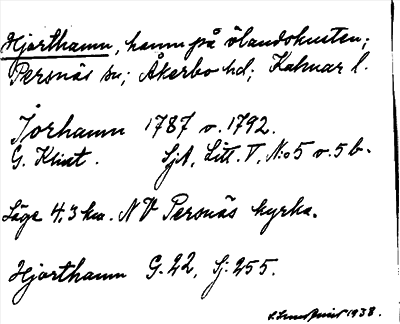 Hjorthamn, hamn på ölandskusten;
Persnäs sn; Åkerbo hd; Kalmar l.
Jorhamn 1787 o. 1792.
G. Klint. SjA, Litt. V, N:o 5 o. 5 b.
Läge 4,3 km. NV Persnäs kyrka.
Hjorthamn G. 22, Sj: 255.
1938.